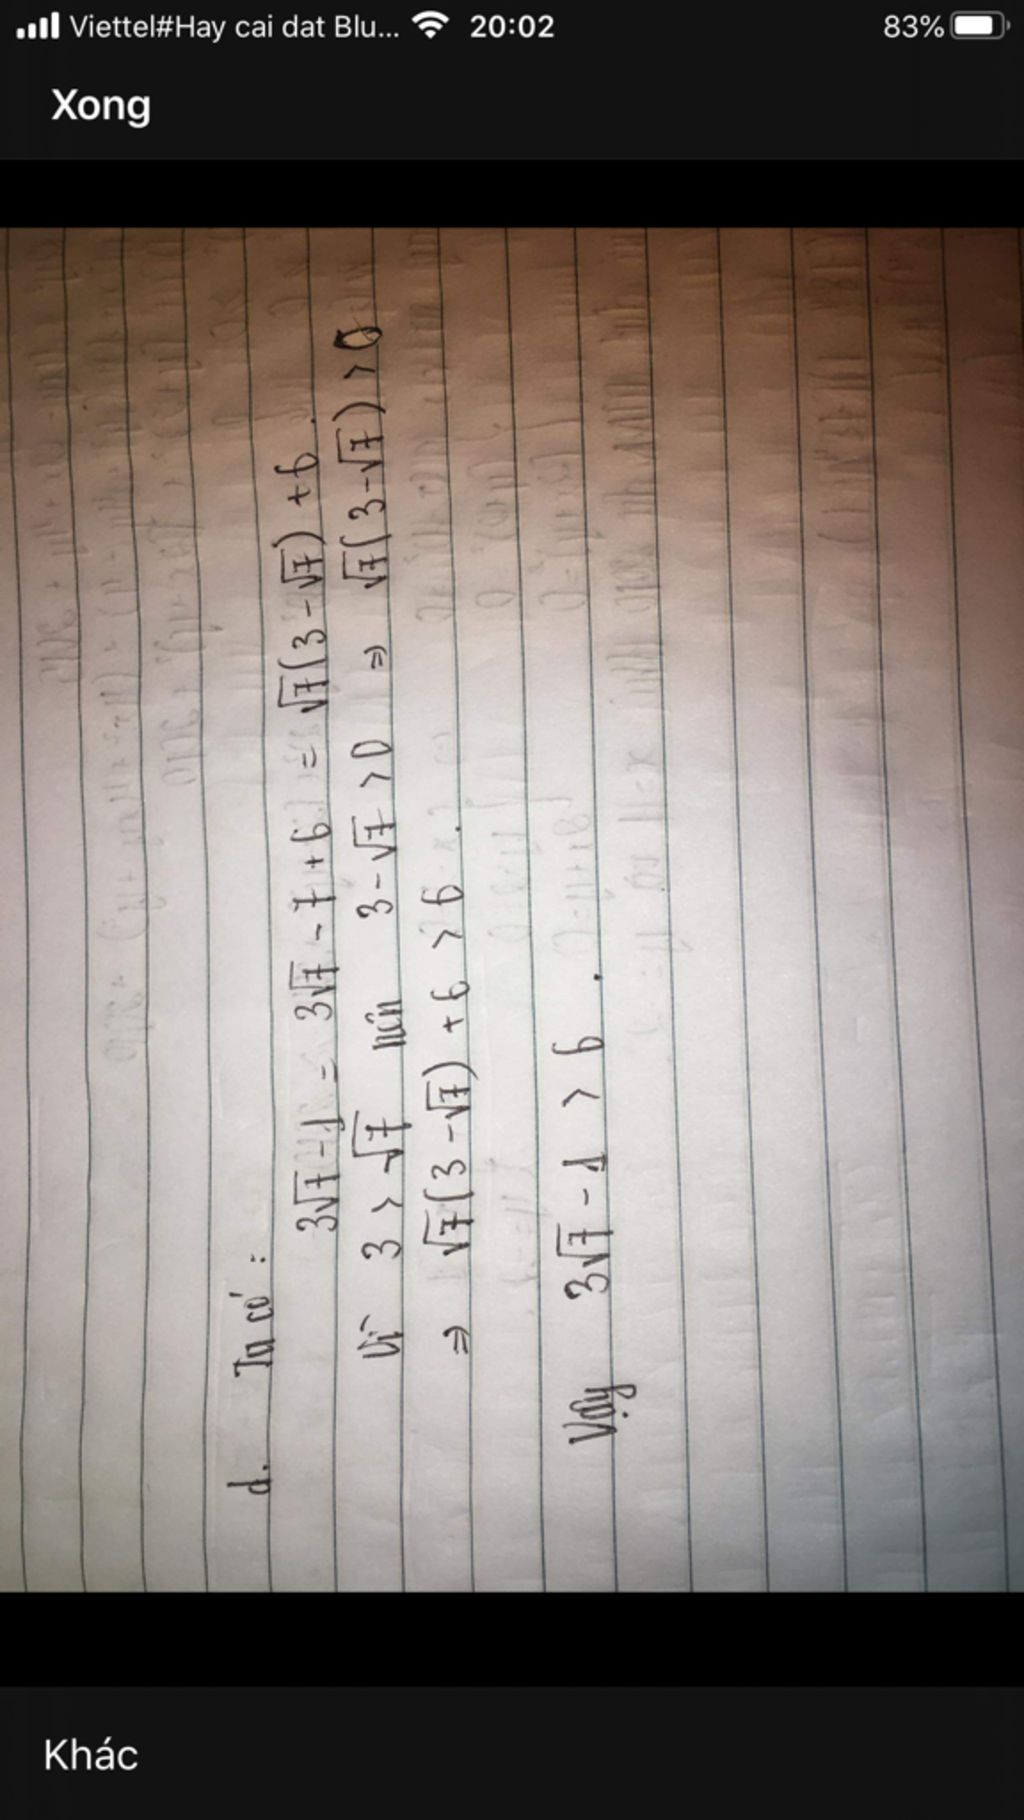 Viettel#Hay cai dat Blu... 20:02 83%
Xong
d. Ta có :
3√7 - 1 = 3√7 - 7 + 6 = √7(3 - √7) + 6.
Vì 3 > √7 nên 3 - √7 > 0 ⇒ √7(3 - √7) > 0
⇒ √7(3 - √7) + 6 > 6.
Vậy 3√7 - 1 > 6.
Khác